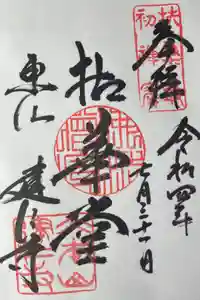 奉拝
令和四年
七月三十一日
拈華堂
東山
建仁寺